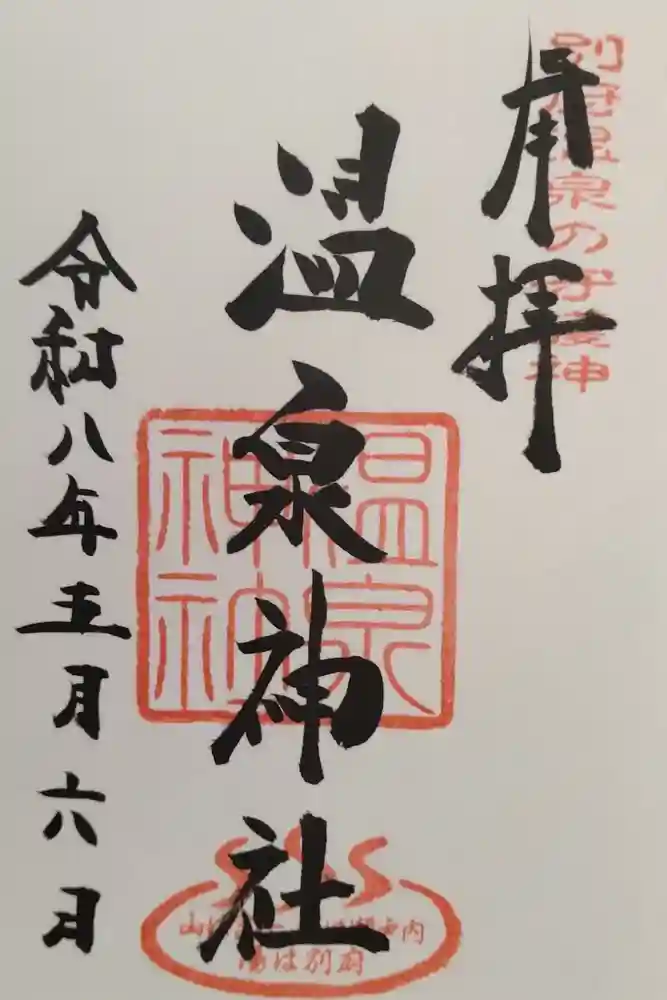 別府温泉の守護神
奉拝
温泉神社
温泉神社
令和八年五月六日
山は富士 海は瀬戸内
湯は別府